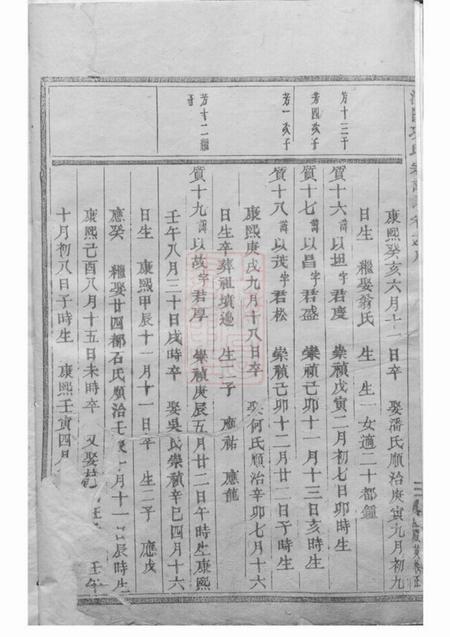 康熙癸亥六月十一日卒 娶潘氏順治庚寅九月初九
日生 繼娶翁氏 生 生一女適二十都鍾
芳十三子
質十六 以坦字君慶 崇禎戊寅二月初七日卯時生
芳四次子
質十七 以昌字君盛 崇禎己卯十一月十三日亥時生
芳一次子
質十八 以茂字君松 崇禎己卯十二月廿二日子時生
康熙庚戌九月十八日卒 娶何氏順治辛卯七月十六
日生卒葬祖墳邊 生二子 應祐 應龍
芳十二繼子
質十九 以故字君厚 崇禎庚辰五月廿二日午時生康熙
壬午八月三十日戌時卒 娶吳氏崇禎辛巳四月十六
日生 康熙甲辰十一月十一日卒 生二子 應戊
應癸 繼娶廿四都石氏順治壬 月十一日辰時生
康熙己酉八月十五日未時卒 又娶 壬午
十月初八日子時生 康熙壬寅四月